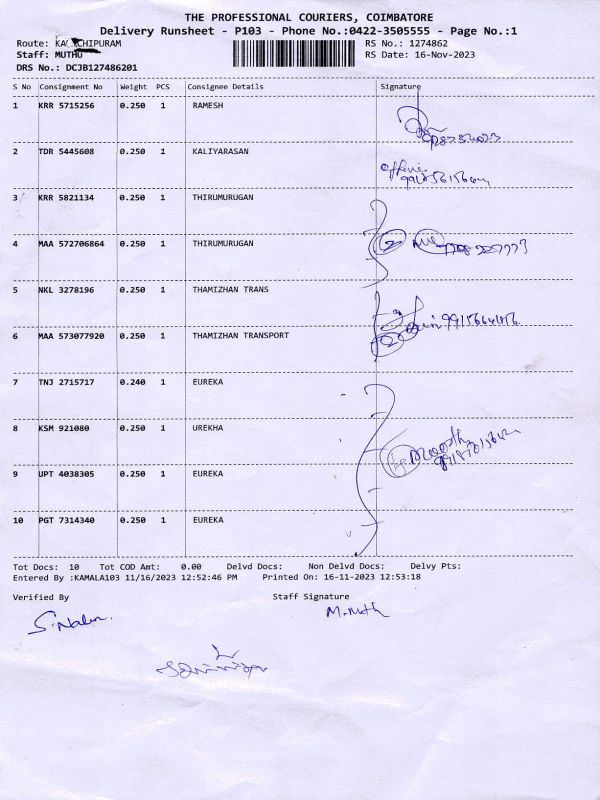 THE PROFESSIONAL COURIERS, COIMBATORE
Delivery Runsheet - P103 - Phone No.:0422-3505555 - Page No.:1
Route: KANCHIPURAM
RS No.: 1274862
Staff: MUTHU
RS Date: 16-Nov-2023
DRS No.: DCJB127486201
S No Consignment No Weight PCS Consignee Details Signature
1 KRR 5715256 0.250 1 RAMESH
2 TDR 5445608 0.250 1 KALIYARASAN
3 KRR 5821134 0.250 1 THIRUMURUGAN
4 MAA 572706864 0.250 1 THIRUMURUGAN
5 NKL 3278196 0.250 1 THAMIZHAN TRANS
6 MAA 573077920 0.250 1 THAMIZHAN TRANSPORT
7 TNJ 2715717 0.240 1 EUREKA
8 KSM 921080 0.250 1 UREKHA
9 UPT 4038305 0.250 1 EUREKA
10 PGT 7314340 0.250 1 EUREKA
Tot Docs: 10 Tot COD Amt: 0.00 Delvd Docs: Non Delvd Docs: Delvy Pts:
Entered By :KAMALA103 11/16/2023 12:52:46 PM Printed On: 16-11-2023 12:53:18
Verified By Staff Signature
M.Muth